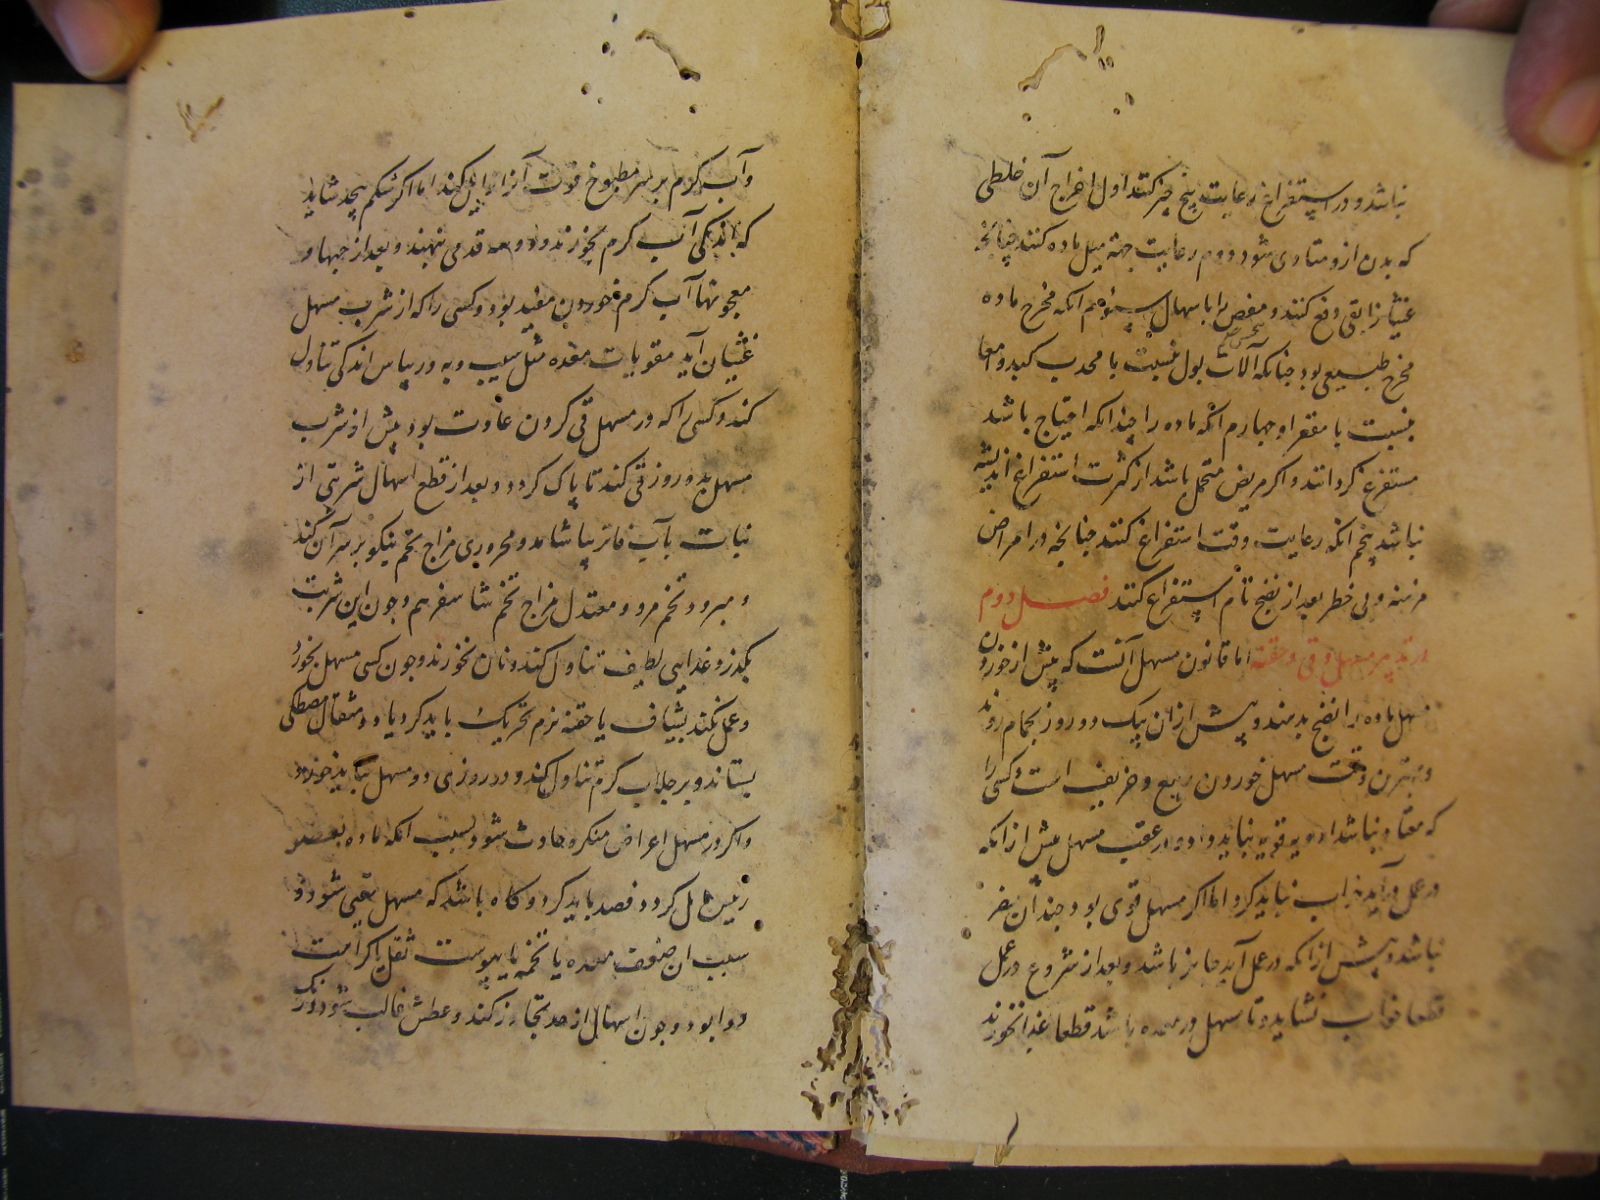 نباشد و در استفراغ رعایت پنج چیز کنند اول اخراج آن خلطی
که بدن ازو متاذی شود دوم رعایت جهة میل ماده کنند چنانچه
غثیانرا بقی دفع کنند و مغص را باسهال سیوم آنکه مخرج ماده
مخرج طبیعی بود چنانکه آلات بول نسبت با محدب کبد و امعا
نسبت با مقعر او چهارم آنکه ماده را چندانکه احتیاج باشد
مستفرغ کردانند و اکر مریض متحمل باشد از کثرت استفراغ اندیشه
نباشد پنجم آنکه رعایت وقت استفراغ کنند چنانچه در امراض
مزمنه و بی خطر بعد از نضج تام استفراغ کنند فصل دوم
در تدبیر مسهل و قی و حقنه اما قانون مسهل آنست که پیش از خوردن
مسهل ماده را نضج بدهند و پیش ازان بیک دو روز بحمام روند
و بهترین وقت مسهل خوردن ربیع و خریف است و کسی را
که معتاد نباشد ادویه قویه نباید داد و در عقب مسهل پیش از آنکه
در عمل در آید خواب نباید کرد اما اکر مسهل قوی بود چندان مضر
نباشد و پیش از آنکه در عمل آید جایز باشد و بعد از شروع در عمل
قطعا خواب نشاید و تا مسهل در معده باشد قطعا غذا نخورند
و آب کرم بر سر مطبوخ قوت آنرا زایل کند اما اکر شکم پیچد شاید
که اندکی آب کرم بخورند و دو سه قدمی بنهند و بعد از حبها و
معجونها آب کرم خوردن مفید بود و کسی را که از شرب مسهل
غثیان آید مقویات معده مثل سیب و به و ریباس اندکی تناول
کند و کسی را که در مسهل قی کردن عادت بود پیش از شرب
مسهل بدو روز قی کند تا پاک کردد و بعد از قطع اسهال شربتی از
نبات بآب فاتر بیاشامد و محروری مزاج تخم بنکو بر سر آن کند
و مبرود تخم مرو و معتدل مزاج تخم شاسفرهم و چون این شربت
بکذرد غذایی لطیف تناول کند و نان نخورند و چون کسی مسهل بخورد
و عمل نکند بشیاف یا حقنه نرم تحریک باید کرد یا دو مثقال مصطکی
بستاند و بر جلاب کرم تناول کند و در روزی دو مسهل نباید خورد
و اکر در مسهل اعراض منکره حادث شود بسبب آنکه ماده بعضو
رئیس مایل کردد فصد باید کرد و کاه باشد که مسهل مقی شود و
سبب ان ضعف معده یا تخمه یا یبوست ثفل یا کراهت
دوا بود و چون اسهال از حد تجاوز کند و عطش غالب شود